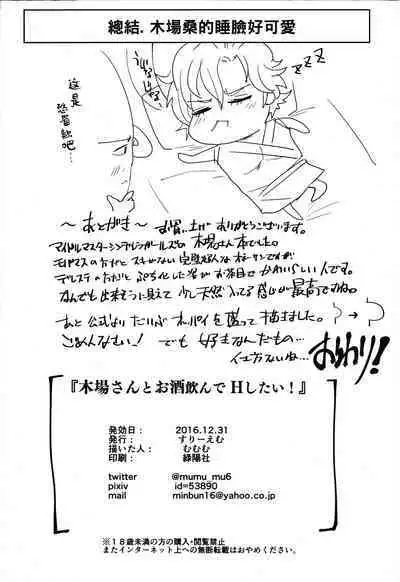 總結. 木場桑的睡臉好可愛
zzz
这是
恐冒症吧…
～あとがき～ お買い上げありがとうございます。
アイドルマスターシンデレラガールズの木場さん本でした。
モバマスの方だと スキがない完璧超人なオーラですが
デレステの方だと ぷち化した姿がお茶目でかわいらしい人です。
なんでも出来そうに見えて 少し天然入ってる感じが最高ですね。
あと 公式よりだいぶオッパイを盛って描きました。
ごめんなさい！ でも 好きなんだもの…
仕方ないね…
おわり！
『木場さんとお酒飲んでHしたい！』
発効日： 2016.12.31
発行： すりーえむ
描いた人： むむむ
印刷： 緑陽社
twitter @mumu_mu6
pixiv id=53890
mail minbun16@yahoo.co.jp
※18歳未満の方の購入・閲覧禁止
またインターネット上への無断転載はおやめください。